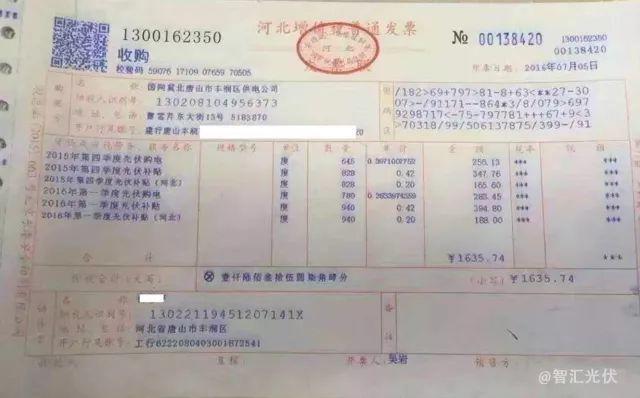 河北增值税普通发票
1300162350
№ 00138420
1300162350
00138420
收购
校验码 59076 17109 07659 70505
开票日期：2016年07月05日
国网冀北唐山市丰润区供电公司
纳税人识别号：130208104956373
地址、电话：曹雪芹东大街15号 5183870
开户行及账号：建行唐山丰润
/182>69+797>81-8+63<**27-30
07>-/91171--864*3/8/079>697
9298717<-75-797781+++67+9<3
>70318/99/506137875/399-/91
2015年第四季度光伏购电 度 645 0.3971007752 256.13 *** ***
2015年第四季度光伏补贴 度 828 0.42 347.76 *** ***
2015年第四季度光伏补贴（河北） 度 828 0.20 165.60 *** ***
2016年第一季度光伏购电 度 780 283.45 *** ***
2016年第一季度光伏补贴 度 940 0.42 394.80 *** ***
2016年第一季度光伏补贴（河北） 度 940 0.20 188.00 *** ***
￥1635.74 ***
价税合计（大写） ⊗壹仟陆佰叁拾伍圆柒角肆分 （小写）￥1635.74
纳税人识别号：13022119451207141X
地址、电话：河北省唐山市丰润区
开户行及账号：工行6222080403001872541
收款人： 复核： 开票人：吴岩 销售方：
@智汇光伏